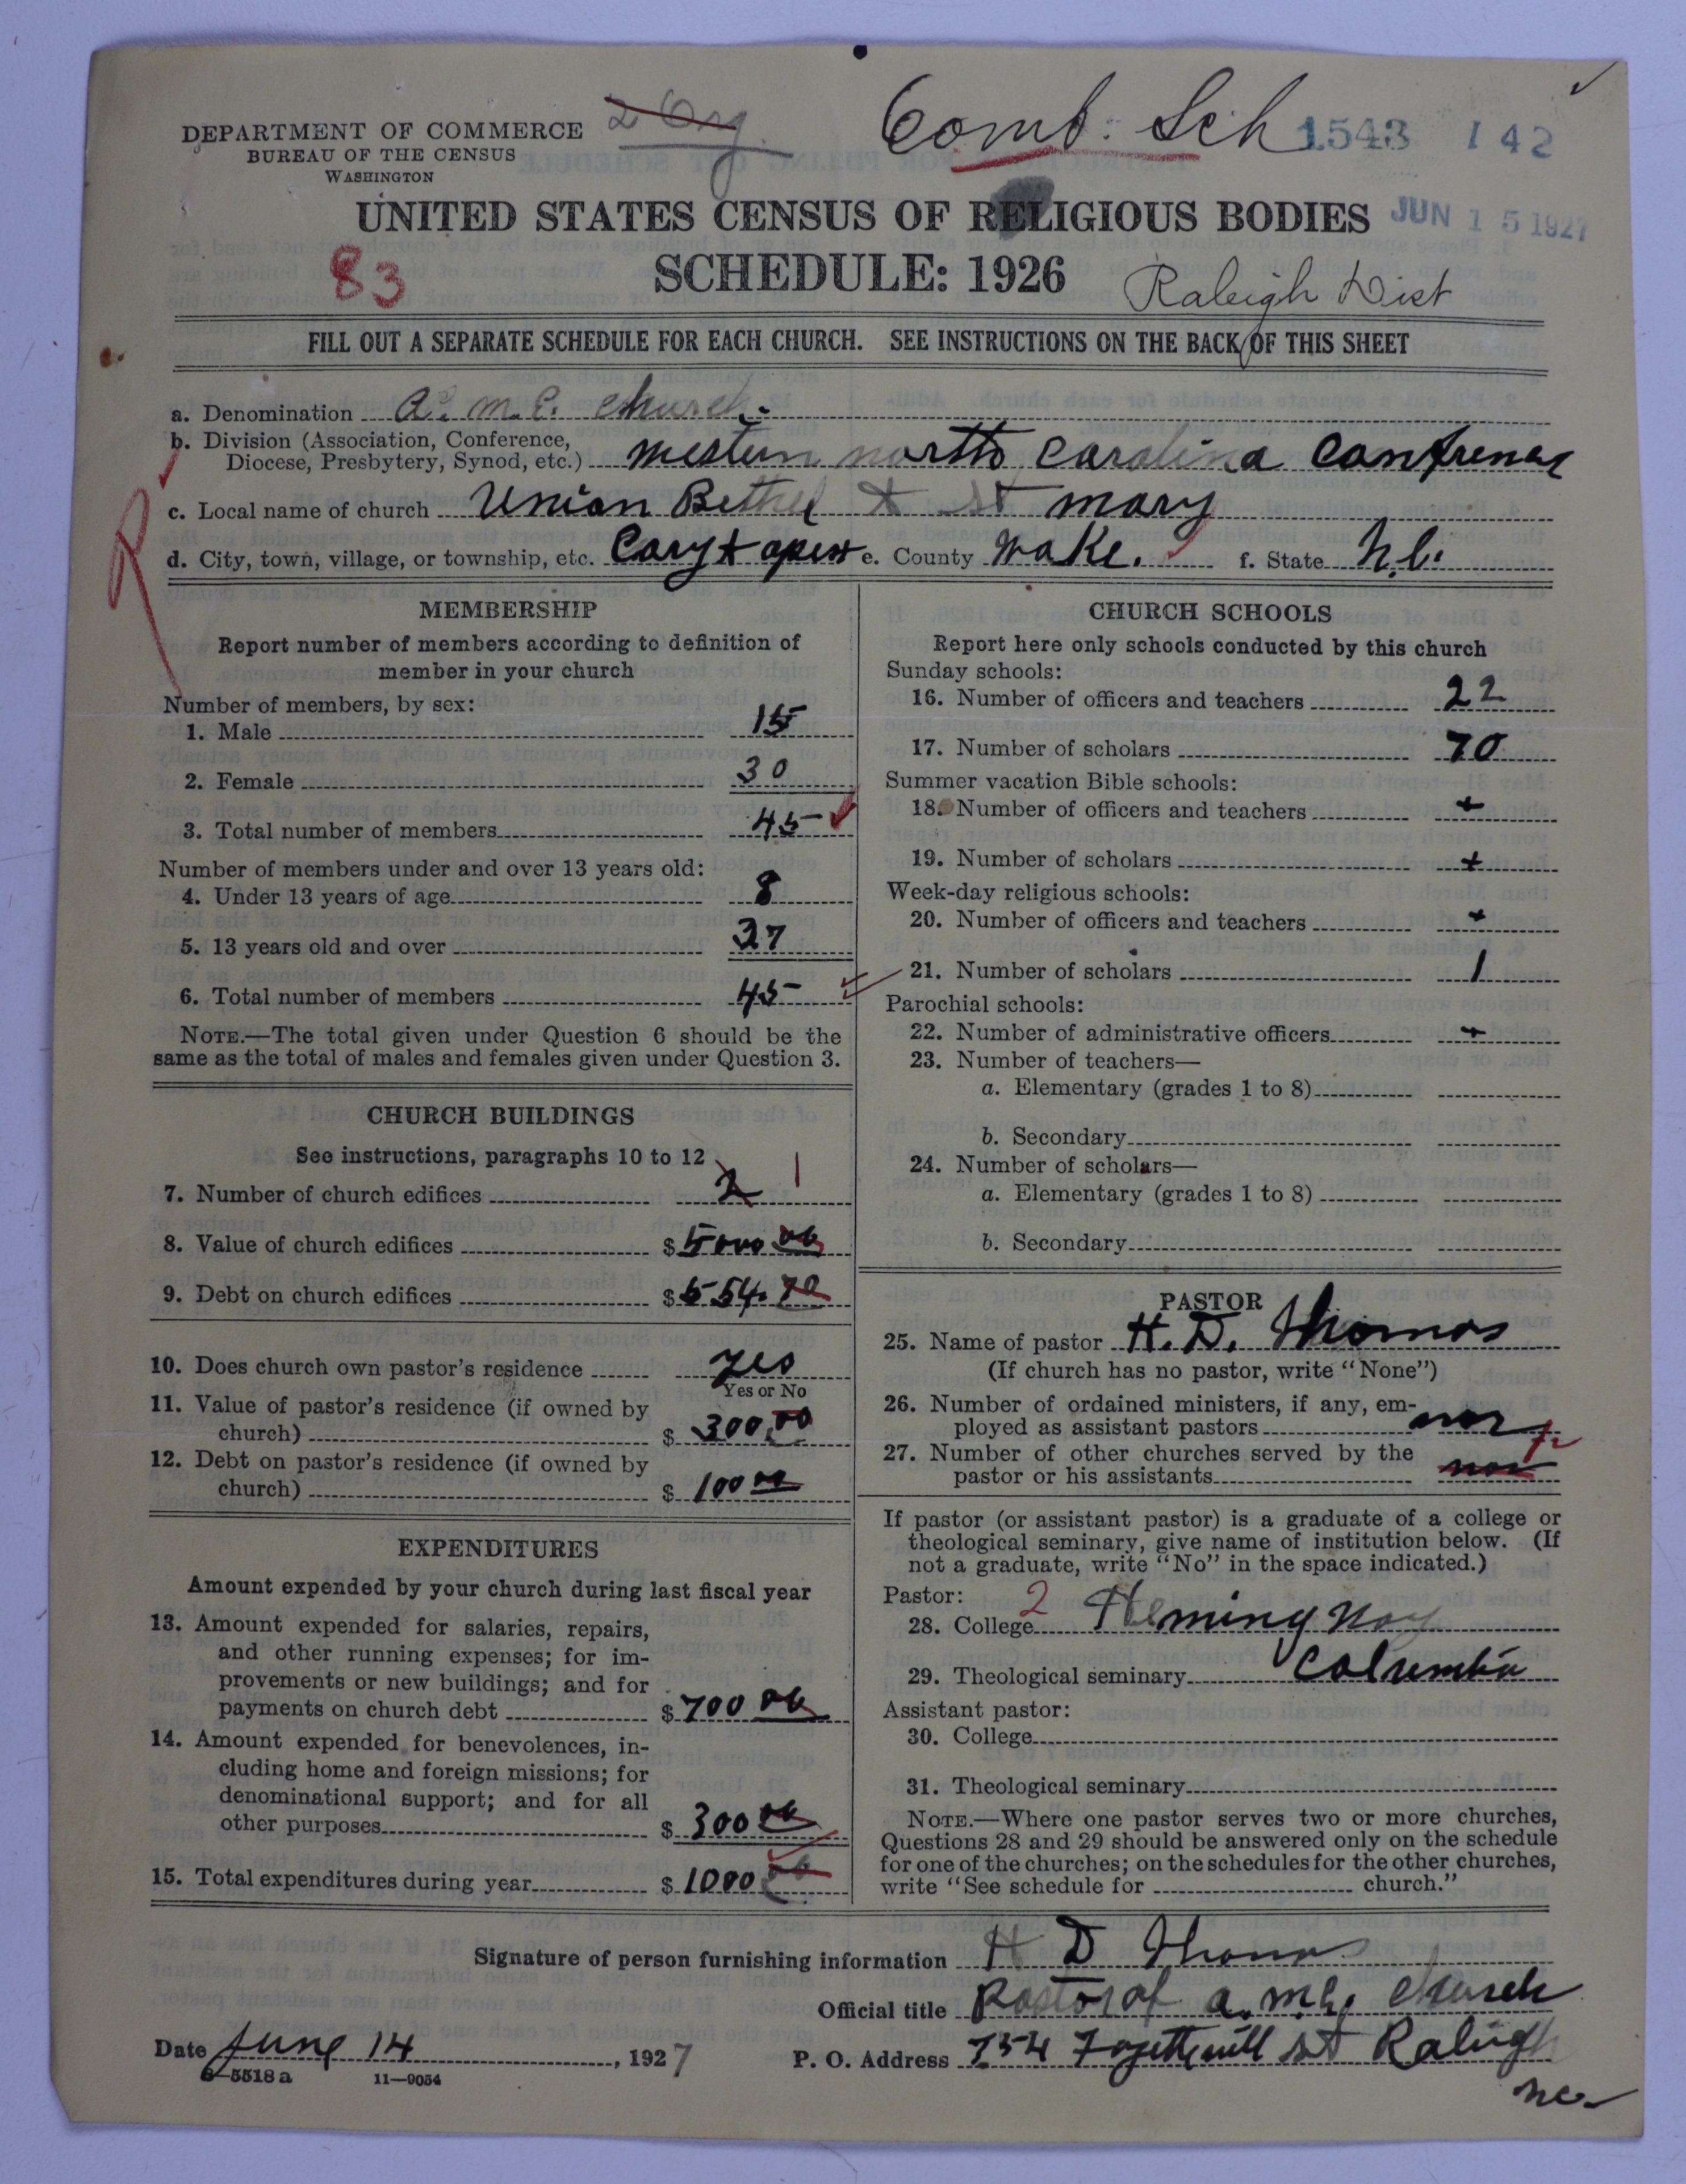 DEPARTMENT OF COMMERCE
BUREAU OF THE CENSUS
WASHINGTON
2 Org.
Comb. Sch 1543 142
UNITED STATES CENSUS OF RELIGIOUS BODIES
JUN 15 1927
83
SCHEDULE: 1926
Raleigh Dist
FILL OUT A SEPARATE SCHEDULE FOR EACH CHURCH. SEE INSTRUCTIONS ON THE BACK OF THIS SHEET
a. Denomination A. M. E. Church.
b. Division (Association, Conference,
Diocese, Presbytery, Synod, etc.) Western north Carolina
c. Local name of church Union Bethel & St mary
d. City, town, village, or township, etc. Cary & apex e. County Wake. f. State N.C.
R
MEMBERSHIP
Report number of members according to definition of
member in your church
Number of members, by sex:
1. Male 15
2. Female 30
3. Total number of members 45
Number of members under and over 13 years old:
4. Under 13 years of age 8
5. 13 years old and over 37
6. Total number of members 45
NOTE.—The total given under Question 6 should be the
same as the total of males and females given under Question 3.
CHURCH BUILDINGS
See instructions, paragraphs 10 to 12
7. Number of church edifices 2 1
8. Value of church edifices $ 5000 00
9. Debt on church edifices $ 554.70
10. Does church own pastor's residence yes
Yes or No
11. Value of pastor's residence (if owned by
church) $ 300.00
12. Debt on pastor's residence (if owned by
church) $ 100 00
EXPENDITURES
Amount expended by your church during last fiscal year
13. Amount expended for salaries, repairs,
and other running expenses; for im-
provements or new buildings; and for
payments on church debt $ 700 00
14. Amount expended for benevolences, in-
cluding home and foreign missions; for
denominational support; and for all
other purposes $ 300 00
15. Total expenditures during year $ 1000 00
CHURCH SCHOOLS
Report here only schools conducted by this church
Sunday schools:
16. Number of officers and teachers 22
17. Number of scholars 70
Summer vacation Bible schools:
18. Number of officers and teachers +
19. Number of scholars +
Week-day religious schools:
20. Number of officers and teachers +
21. Number of scholars 1
Parochial schools:
22. Number of administrative officers +
23. Number of teachers—
a. Elementary (grades 1 to 8)
b. Secondary
24. Number of scholars—
a. Elementary (grades 1 to 8)
b. Secondary
PASTOR
25. Name of pastor H. D. Thomas
(If church has no pastor, write "None")
26. Number of ordained ministers, if any, em-
ployed as assistant pastors
27. Number of other churches served by the
pastor or his assistants
If pastor (or assistant pastor) is a graduate of a college or
theological seminary, give name of institution below. (If
not a graduate, write "No" in the space indicated.)
Pastor:
28. College 2
29. Theological seminary Columbia
Assistant pastor:
30. College
31. Theological seminary
NOTE.—Where one pastor serves two or more churches,
Questions 28 and 29 should be answered only on the schedule
for one of the churches; on the schedules for the other churches,
write "See schedule for church."
Signature of person furnishing information H D Thomas
Official title Pastor of a. m. e. church
Date June 14, 1927
P. O. Address 754 Fayettevill St Raleigh
NC
8—5518a 11—9054